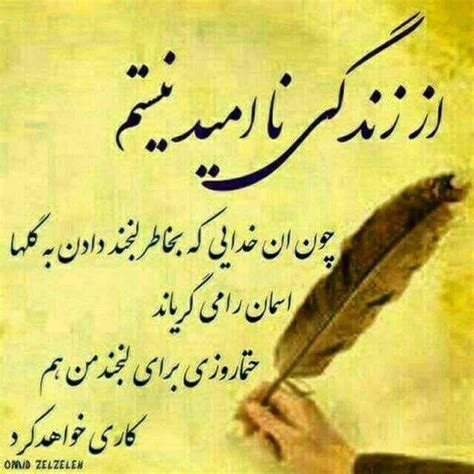 از زندگی نا امید نیستم
چون ان خدایی که بخاطر لبخند دادن به گلها
اسمان را می گریاند
حتما روزی برای لبخند من هم
کاری خواهد کرد
OMID ZELZELEH